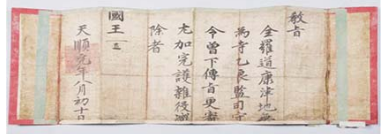 教旨
全羅道康津地無
爲寺乙良監司守
令曾下傳旨更審
尤加完護雜役減
除者
國王
天順元年八月初十日